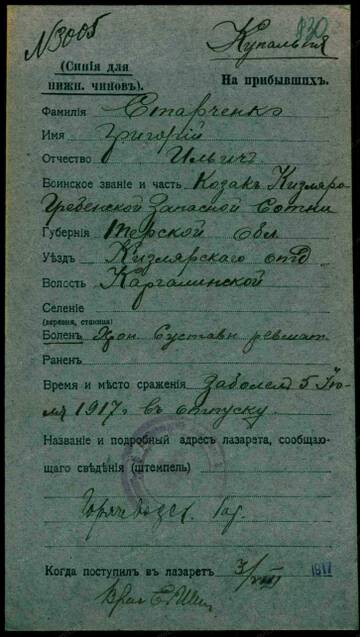 N3005
830
Купальня
(Синія для
нижн. чиновъ).
На прибывшихъ.
Фамилія Старченко
Имя Григорій
Отчество Ильичъ
Воинское званіе и часть Козакъ Кизляро
Гребенской Запасной Сотни
Губернія Терской обл.
Уѣздъ Кизлярскаго отд
Волость Каргалинской
Селеніе
(деревня, станица)
Боленъ Хрон. Суставн ревмат.
Раненъ
Время и мѣсто сраженія Заболел 5 Iю-
ля 1917 г въ отпуску.
Названіе и подробный адресъ лазарета, сообщаю-
щаго свѣдѣнія (штемпель)
Горячеводск.
Когда поступилъ въ лазаретъ 3/VIII 1917
Врач